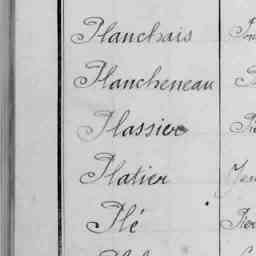 Planchais
Plancheneau
Plassier
Platier
Plé